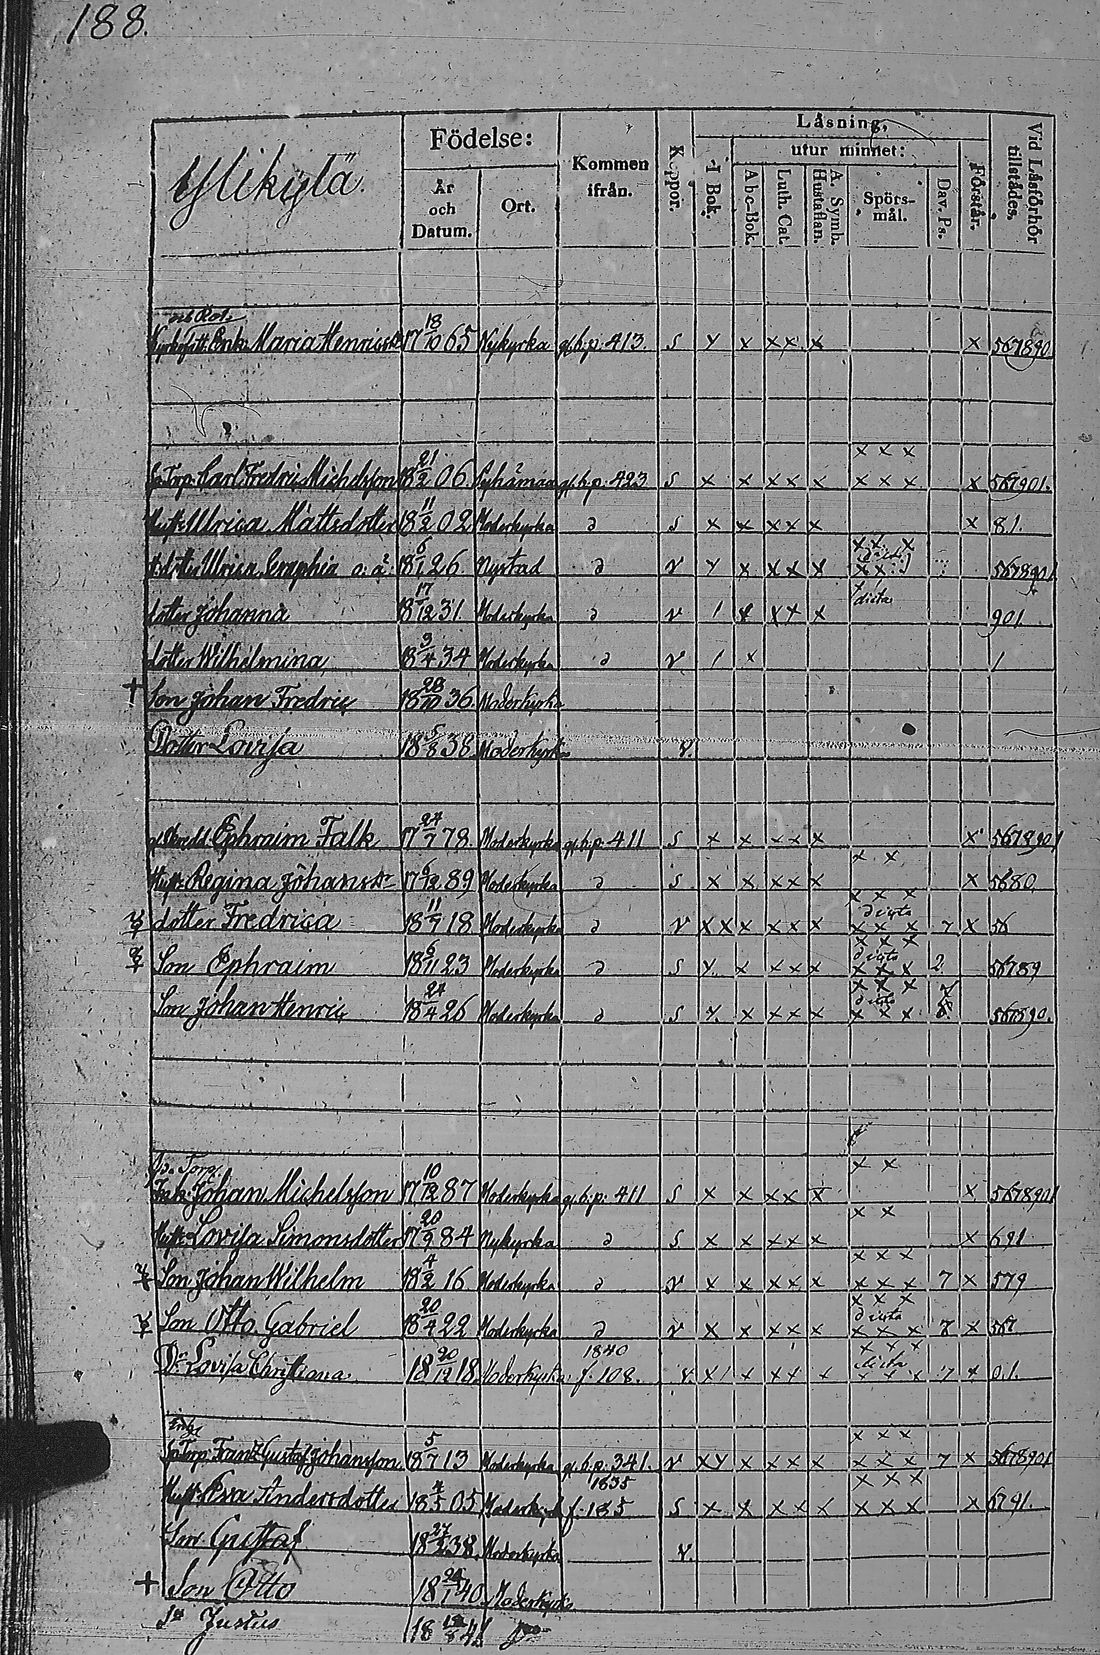 188.
Ylikylä
Födelse:
År och Datum.
Ort.
Kommen ifrån.
Koppor.
I Bok.
Läsning,
utur minnet:
Abc-Bok.
Luth. Cat.
A. Symb. Hustaflan.
Spörs-mål.
Dav. Ps.
Förstår.
Vid Läsförhör tillstädes.
Enk. Maria Henricsdr 17 18/10 65 Nykyrka p. 413. S x x x x x x 567890
x x x
Torp. Carl Fredric Michelsson 18 21/2 06 423 S x x x x x x x x x 567901.
Hust. Ulrica Mattsdotter 18 11/2 02 Moderkyrka d S x x x x x x 81.
dotter Ulrica Seraphia 18 6/1 26 Nystad d v x x x x 5678901
dotter Johanna 18 17/12 31. Moderkyrka d v 1 x x x x dicta 901
dotter Wilhelmina 18 3/4 34 Moderkyrka d v 1 x 1
† Son Johan Fredric 18 28/10 36 Moderkyrka
Dotter Lovisa 18 5/8 38 Moderkyrka v.
Ephraim Falk 17 24/7 78. Moderkyrka p. 411 S x x x x x x 5678901
x x
Hust. Regina Johansdr 17 6/12 89 Moderkyrka d S. x x x x x x 5680.
x x x
dotter Fredrica 18 11/9 18 Moderkyrka d v x x x x x x dicta x x x 7 x 56
x x x
Son Ephraim 18 6/11 23 Moderkyrka d S x x x x dicta x x x 2 56789
x x x
Son Johan Henric 18 24/4 26 Moderkyrka d S x x x x x dicta x x x 567890.
Torp.
x x
Johan Michelsson 17 10/12 87 Moderkyrka p. 411 S x x x x x x 5678901
x x
Hust. Lovisa Simonsdotter 17 20/9 84 Nykyrka d S x x x x x x 691
x x x
Son Johan Wilhelm 18 4/2 16 Moderkyrka d v x x x x x x x x 7 x 579
x x x
Son Otto Gabriel 18 20/4 22 Moderkyrka d v x x x x x dicta x x x 7 x 567
1840 x x x
Dr. Lovisa Christiana 18 20/12 18 Moderkyrka f. 108. v. x 1 x x x x dicta x x x 7 x 01.
x x x
Torp. Frans Gustaf Johansson 18 5/7 13 Moderkyrka p. 341. v x x x x x x x x x 7 x 5678901
1835 x x x
Hust. Eva Andersdotter 18 4/5 05 Moderkyrk f. 185 S x x x x x x x x x 6791.
Son Gustaf 18 27/2 38. Moderkyrka v.
† Son Otto 18 24/1 40 Moderkyrka
Sn Justus 18 12/8 41